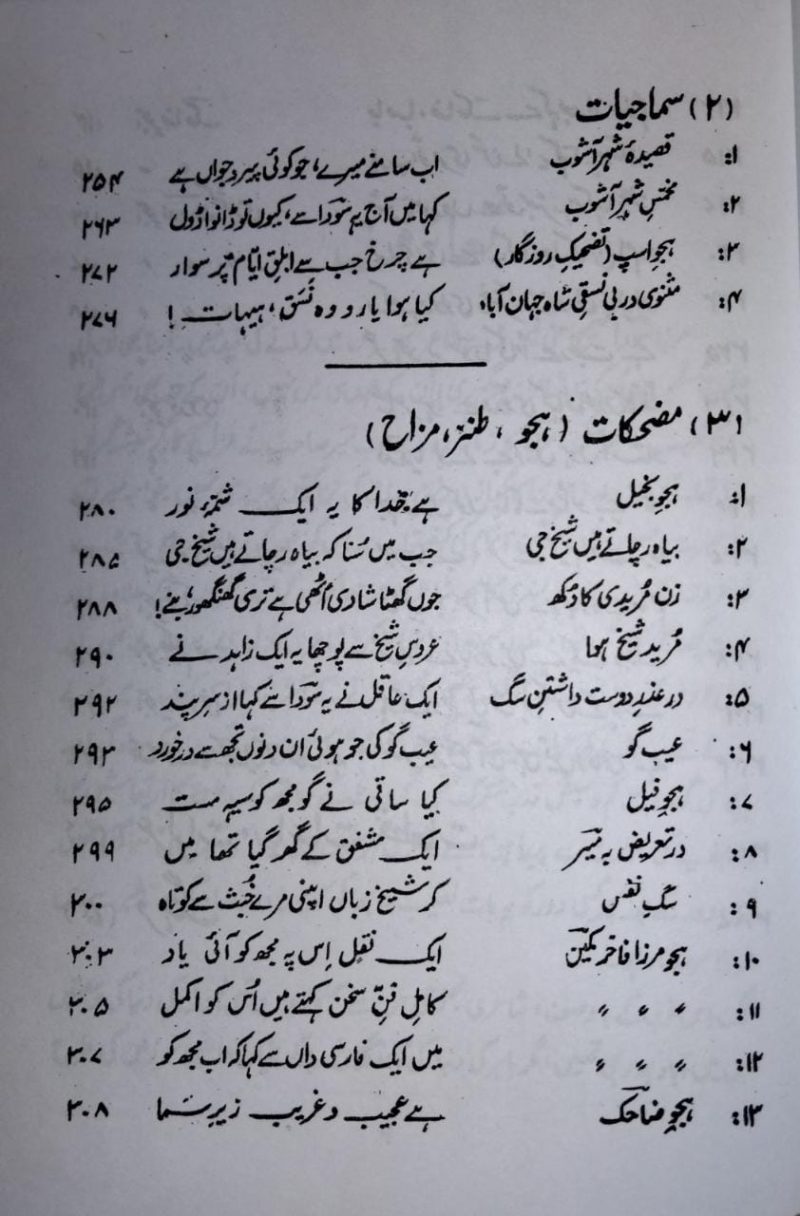 (۲) سماجیات
۱: قصیدۂ شہر آشوب اب سامنے میرے، جو کوئی پیر و جواں ہے ۲۵۴
۲: مخمسِ شہر آشوب کہا میں آج یہ سوؔدا سے، کیوں تو ڈانوا ڈول ۲۶۳
۳: ہجو اسپ (تضحیکِ روزگار) ہے چرخ جب سے ابلقِ ایّام پر سوار ۲۷۲
۴: مثنوی در بی نسقی شاہ جہان آباد کیا ہوا یارو وہ نَسَق، ہیہات! ۲۷۶
(۳) مضحکات (ہجو، طنز، مزاح)
۱: ہجوِ بخیل ہے خدا کا یہ ایک شمّۂ نور ۲۸۰
۲: بیاہ رچاتے ہیں شیخ جی جب میں سُنا کہ بیاہ رچاتے ہیں شیخ جی ۲۸۵
۳: زن مُریدی کا دُکھ جوں گھٹا شادی اُٹھی ہے تری گھنگھور، بنے! ۲۸۸
۴: مُریدِ شیخ ہوا عروسِ شیخ سے پوچھا یہ ایک زاہد نے ۲۹۰
۵: در عذرِ دوست داشتنِ سگ ایک عاقل نے یہ سوؔدا سے کہا از سرِ پند ۲۹۲
۶: عیب گو عیب گو کی جو ہوئی ان دنوں تجھ سے درخورد ۲۹۳
۷: ہجوِ فیل کیا ساقی نے گو مجھ کو سیہ مست ۲۹۵
۸: در تعریض بہ میؔر ایک مشفق کے گھر گیا تھا میں ۲۹۹
۹: سگِ نفس کر شیخ زباں اپنی مرے خُبث سے کوتاہ ۳۰۰
۱۰: ہجوِ مرزا فاخر مکیؔن ایک نقل اِس پہ مجھ کو آئی یاد ۳۰۳
۱۱: 〃 〃 〃 کاملِ فنِّ سخن کہتے ہیں اُس کو اکمل ۳۰۵
۱۲: 〃 〃 〃 میں ایک فارسی داں سے کہا کہ اب مجھ کو ۳۰۷
۱۳: ہجوِ ضاحکؔ ہے عجیب و غریب زیرِ سَما ۳۰۸